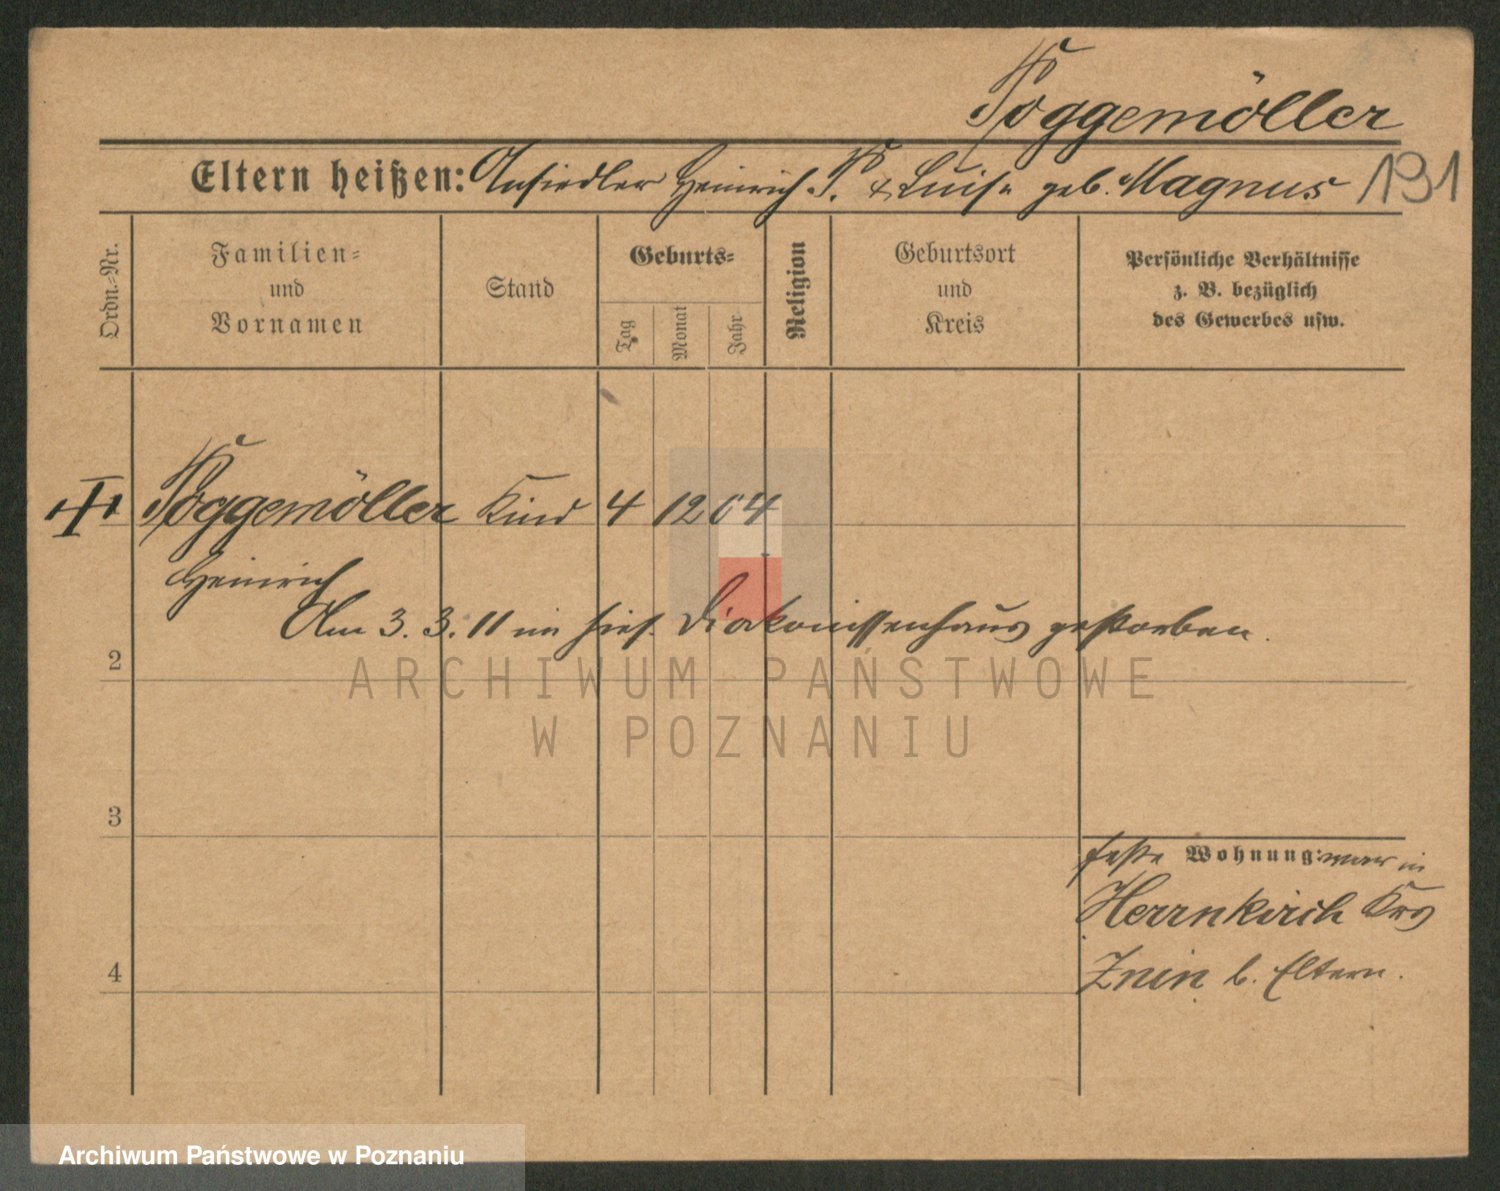 Poggemöller
Eltern heißen: Ansiedler Heinrich P. & Luise geb. Magnus 131
Ordn.-Nr.
Familien-
und
Vornamen
Stand
Geburts-
Tag
Monat
Jahr
Religion
Geburtsort
und
Kreis
Persönliche Verhältnisse
z. B. bezüglich
des Gewerbes usw.
Poggemöller Kind 4 12 04
Heinrich
Am 3. 3. 11 im hies. Diakonissenhaus gestorben.
2
ARCHIWUM PAŃSTWOWE
W POZNANIU
3
feste Wohnung: war in
Herrnkirch Krs
4
Znin b. Eltern.
Archiwum Państwowe w Poznaniu